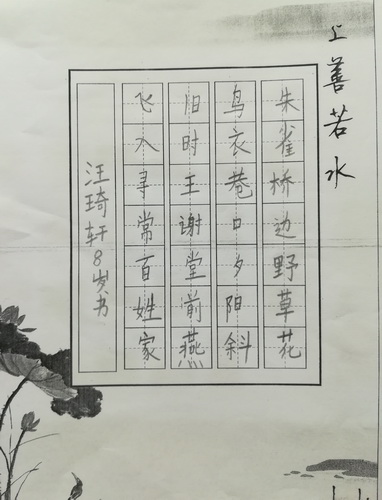 上善若水
朱雀桥边野草花
鸟衣巷口夕阳斜
旧时王谢堂前燕
飞入寻常百姓家
汪琦轩8岁书